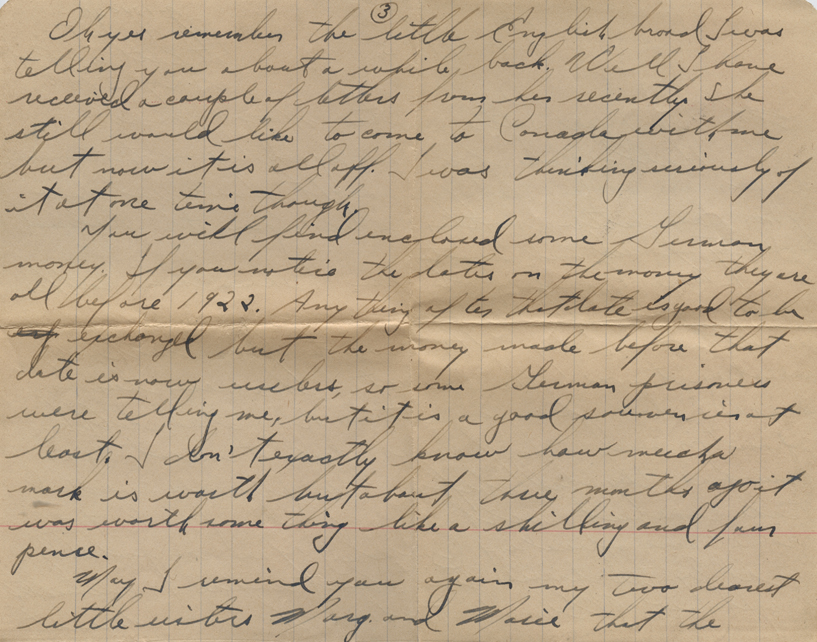 3
Oh yes remember the little English broad I was
telling you about a while back. Well I have
received a couple of letters from her recently. She
still would like to come to Canada with me
but now it is all off. I was thinking seriously of
it at one time though.
You will find enclosed some German
money. If you notice the dates on the money they are
all before 1922. Any thing after that date is good to be
exchanged but the money made before that
date is now useless, so some German prisoners
were telling me, but it is a good souvenir at
least. I don't exactly know how much a
mark is worth but about three months ago it
was worth some thing like a shilling and four
pense.
May I remind you again my two dearest
little sisters Marg. and Marie that the